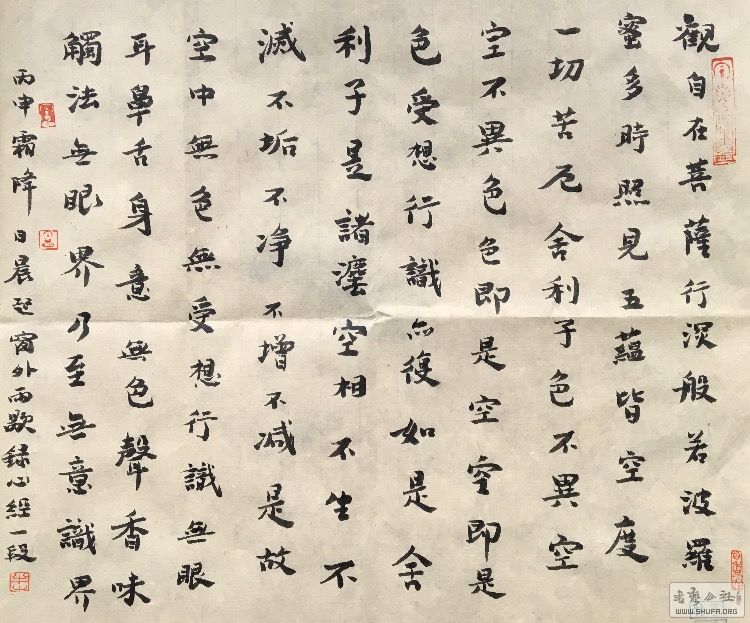 觀自在菩薩行深般若波羅
蜜多時照見五蘊皆空度
一切苦厄舍利子色不異空
空不異色色即是空空即是
色受想行識亦復如是舍
利子是諸法空相不生不
滅不垢不净不增不减是故
空中無色無受想行識無眼
耳鼻舌身意無色聲香味
觸法無眼界乃至無意識界
丙申霜降日晨起窗外雨歇録心經一段
WWW.SHUFA.ORG